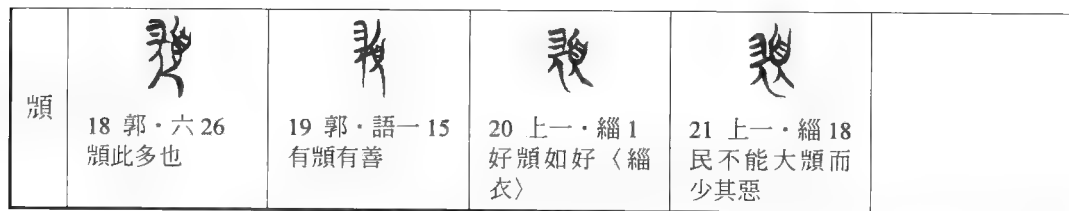 18 郭·六 26
此多也
19 郭·語一 15
有 有善
20 上一·緇 1
好 如好〈緇
衣〉
21 上一·緇 18
民不能大 而
少其惡